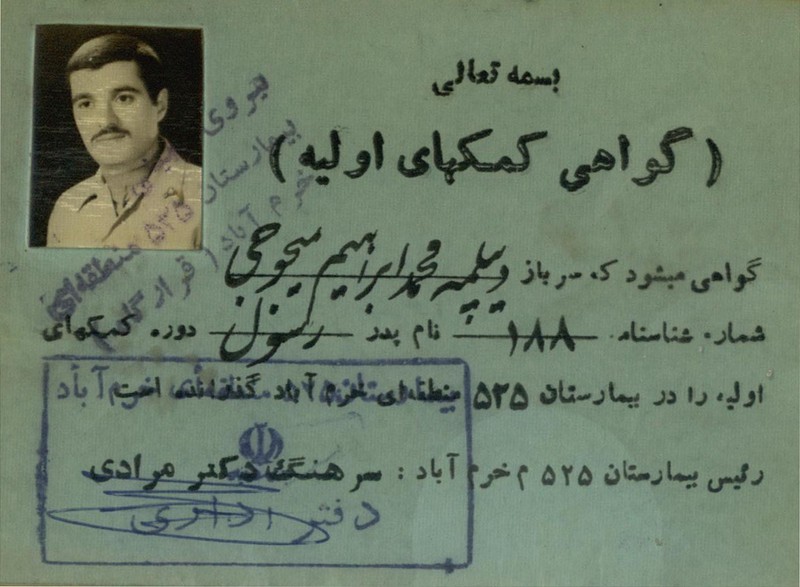 بسمه تعالی
( گواهی کمکهای اولیه )
گواهی میشود که سرباز وظیفه محمد ابراهیم
شماره شناسنامه ۱۸۸ نام پدر رسول دوره کمکهای
اولیه را در بیمارستان ۵۲۵ منطقه‌ای خرم آباد گذرانده است
رئیس بیمارستان ۵۲۵ م خرم آباد : سرهنگ دکتر مرادی
نیروی
بیمارستان ۵۲۵ منطقه‌ای
خرم آباد ( قرارگاه
خرم آباد
دفتر اداری